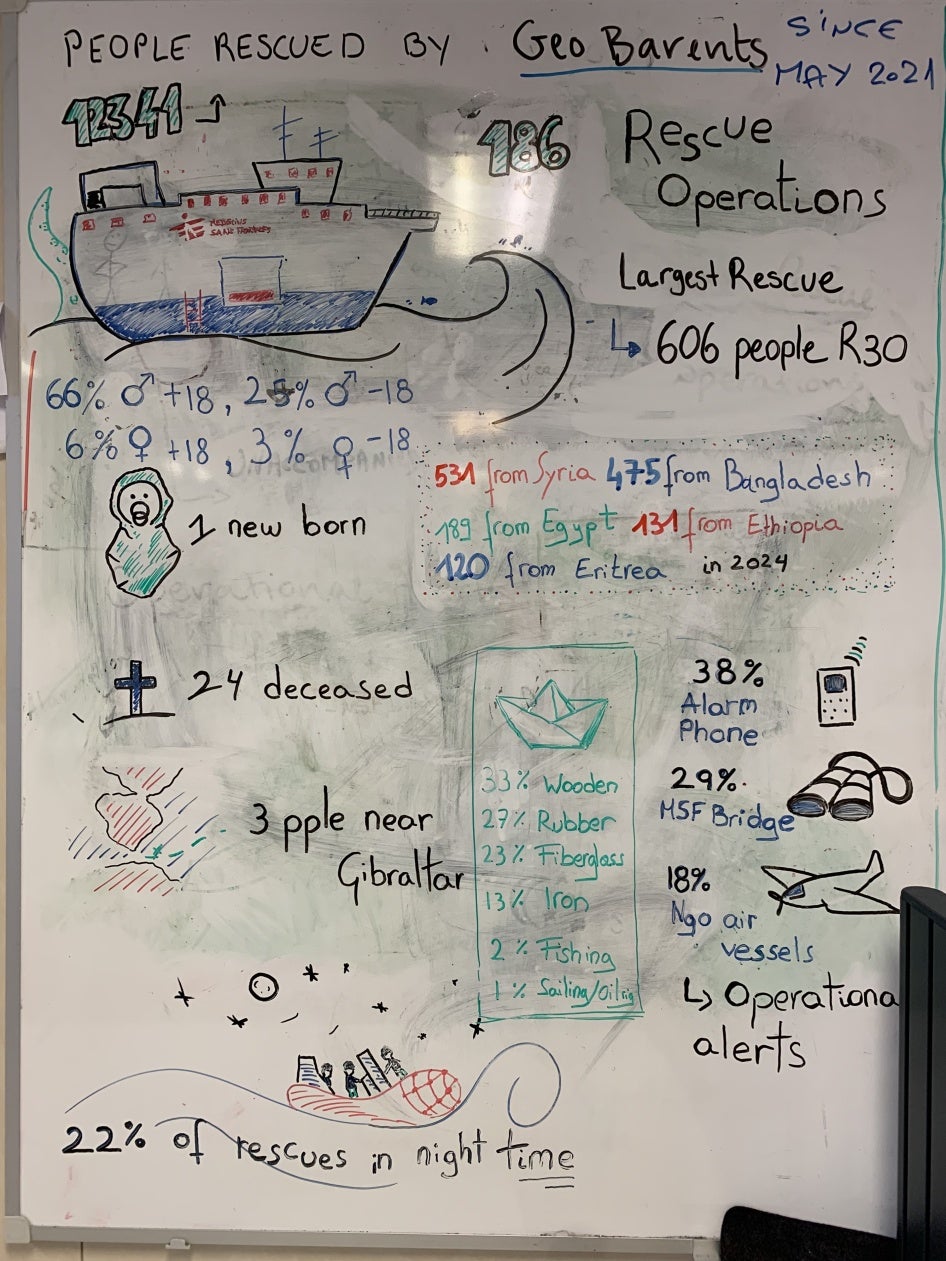 PEOPLE RESCUED BY Geo Barents SINCE
MAY 2021
12341
186 Rescue
Operations
MEDECINS
SANS FRONTIERES
Largest Rescue
606 people R30
66% ♂ +18, 25% ♂ -18
6% ♀ +18, 3% ♀ -18
1 new born
531 from Syria 475 from Bangladesh
189 from Egypt 131 from Ethiopia
120 from Eritrea in 2024
24 deceased
3 pple near
Gibraltar
33% Wooden
27% Rubber
23% Fiberglass
13% Iron
2% Fishing
1% Sailing/Oilrig
38%
Alarm
Phone
29%
MSF Bridge
18%
Ngo air
vessels
↳ Operationa
alerts
22% of rescues in night time